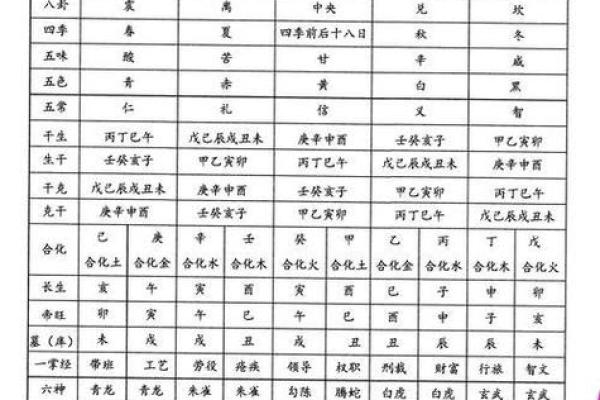 八卦 震 离 中央 兑 坎
四季 春 夏 四季前后十八日 秋 冬
五味 酸 苦 甘 辛 咸
五色 青 赤 黄 白 黑
五常 仁 礼 信 义 智
干生 丙丁巳午 戊己辰戌丑未 庚辛申酉 壬癸亥子 甲乙寅卯
生干 壬癸亥子 甲乙寅卯 丙丁巳午 戊己辰戌丑未 庚辛申酉
干克 戊己辰戌丑未 庚辛申酉 壬癸亥子 甲乙寅卯 丙丁巳午
克干 庚辛申酉 壬癸亥子 甲乙寅卯 丙丁巳午 戊己辰戌丑未
己 庚 辛 壬 癸 甲 乙 丙 丁 戊
合化 合化土 合化金 合化水 合化木 合化火 合化土 合化金 合化水 合化木 合化火
长生 亥 午 寅 酉 寅 酉 巳 子 申 卯
帝旺 卯 寅 午 巳 午 巳 酉 申 子 亥
墓（库） 未 戌 戌 丑 丑 丑 辰 辰 未
一掌经 带班 工艺 劳役 疮疾 领导 权职 刑裁 财富 行旅 智文
六神 青龙 青龙 朱雀 朱雀 勾陈 螣蛇 白虎 白虎 玄武 玄武